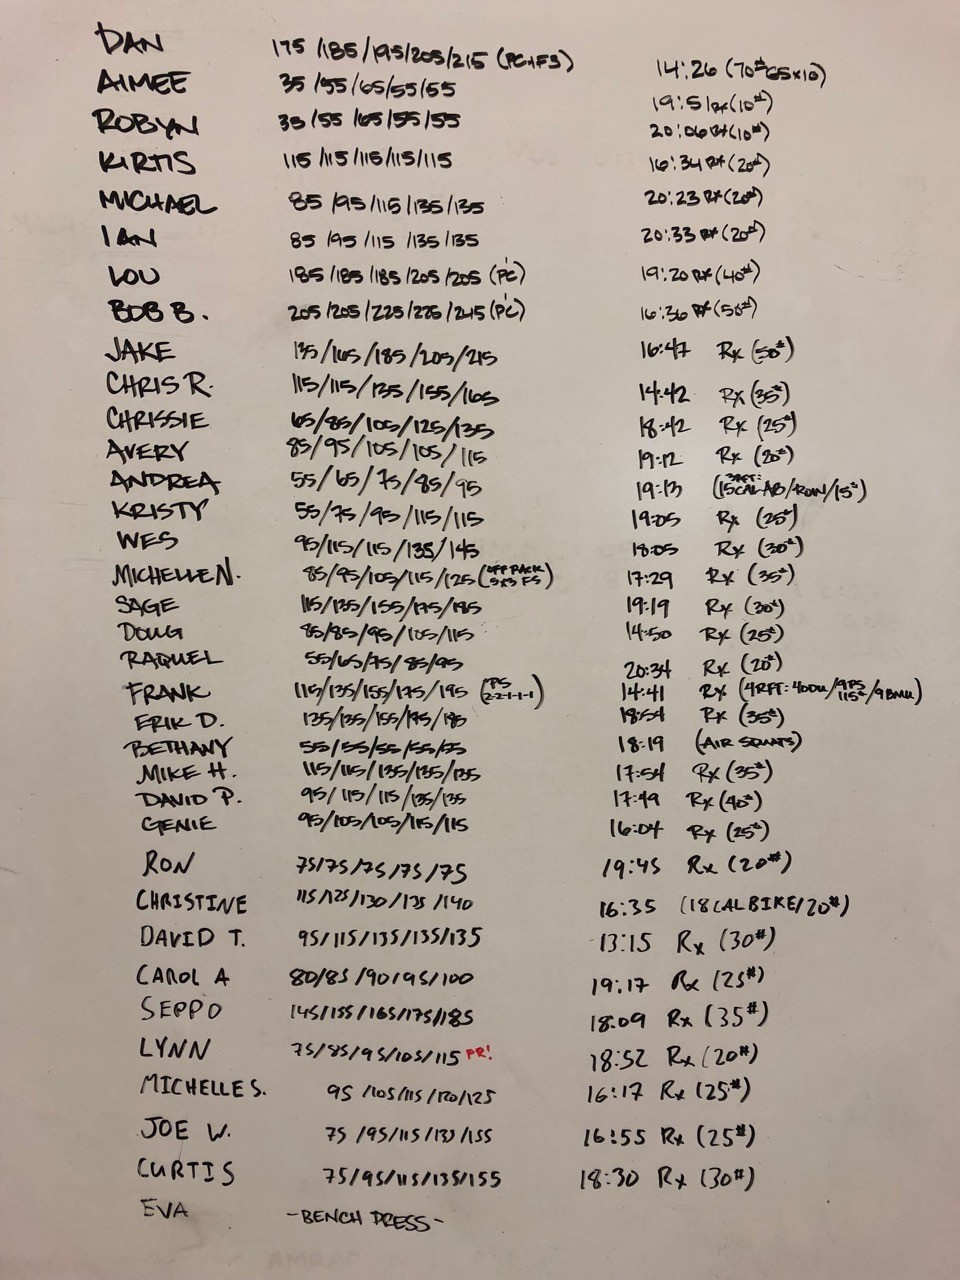 DAN 175/185/195/205/215 (PC+FS) 14:26 (70# GS x10)
AIMEE 35/55/65/55/55 19:51 Rx (10#)
ROBYN 35/55/65/55/55 20:06 Rx (10#)
KIRTIS 115/115/115/115/115 16:34 Rx (20#)
MICHAEL 85/95/115/135/135 20:23 Rx (20#)
IAN 85/95/115/135/135 20:33 Rx (20#)
LOU 185/185/185/205/205 (PC) 19:20 Rx (40#)
BOB B. 205/205/225/225/245 (PC) 16:36 Rx (50#)
JAKE 135/165/185/205/215 16:47 Rx (50#)
CHRIS R. 115/115/135/155/165 14:42 Rx (35#)
CHRISSIE 65/85/105/125/135 18:42 Rx (25#)
AVERY 85/95/105/105/115 19:12 Rx (20#)
ANDREA 55/65/75/85/95 19:13 (3RFT: 15 CAL AB/ROW/15#)
KRISTY 55/75/95/115/115 19:05 Rx (25#)
WES 95/115/115/135/145 18:05 Rx (30#)
MICHELLE N. 85/95/105/115/125 (OFF RACK 5x3 FS) 17:29 Rx (35#)
SAGE 115/135/155/175/185 19:19 Rx (30#)
DOUG 85/85/95/105/115 14:50 Rx (25#)
RAQUEL 55/65/75/85/95 20:34 Rx (20#)
FRANK 115/135/155/175/195 (PS 2-2-1-1-1) 14:41 Rx (4RFT: 400M/9PS 115#/9BMU)
ERIK D. 135/135/155/185 18:54 Rx (35#)
BETHANY 55/55/55/55/55 18:19 (AIR SQUATS)
MIKE H. 115/115/135/135/135 17:54 Rx (35#)
DAVID P. 95/115/115/135/135 17:49 Rx (40#)
GENIE 95/105/105/115/115 16:04 Rx (25#)
RON 75/75/75/75/75 19:45 Rx (20#)
CHRISTINE 115/125/130/135/140 16:35 (18 CAL BIKE/20#)
DAVID T. 95/115/135/135/135 13:15 Rx (30#)
CAROL A 80/85/90/95/100 19:17 Rx (25#)
SEPPO 145/155/165/175/185 18:09 Rx (35#)
LYNN 75/85/95/105/115 PR! 18:52 Rx (20#)
MICHELLE S. 95/105/115/120/125 16:17 Rx (25#)
JOE W. 75/95/115/135/155 16:55 Rx (25#)
CURTIS 75/95/115/135/155 18:30 Rx (30#)
EVA -BENCH PRESS-